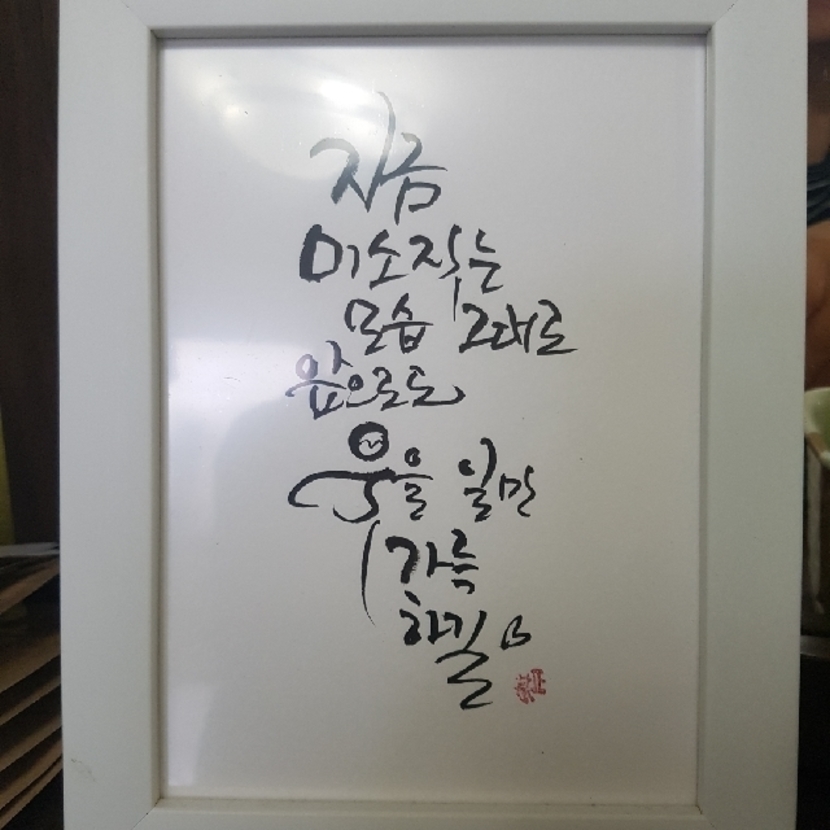 지금
미소작는
모습 그대로
앞으로도
웃을 일만
가득
하길